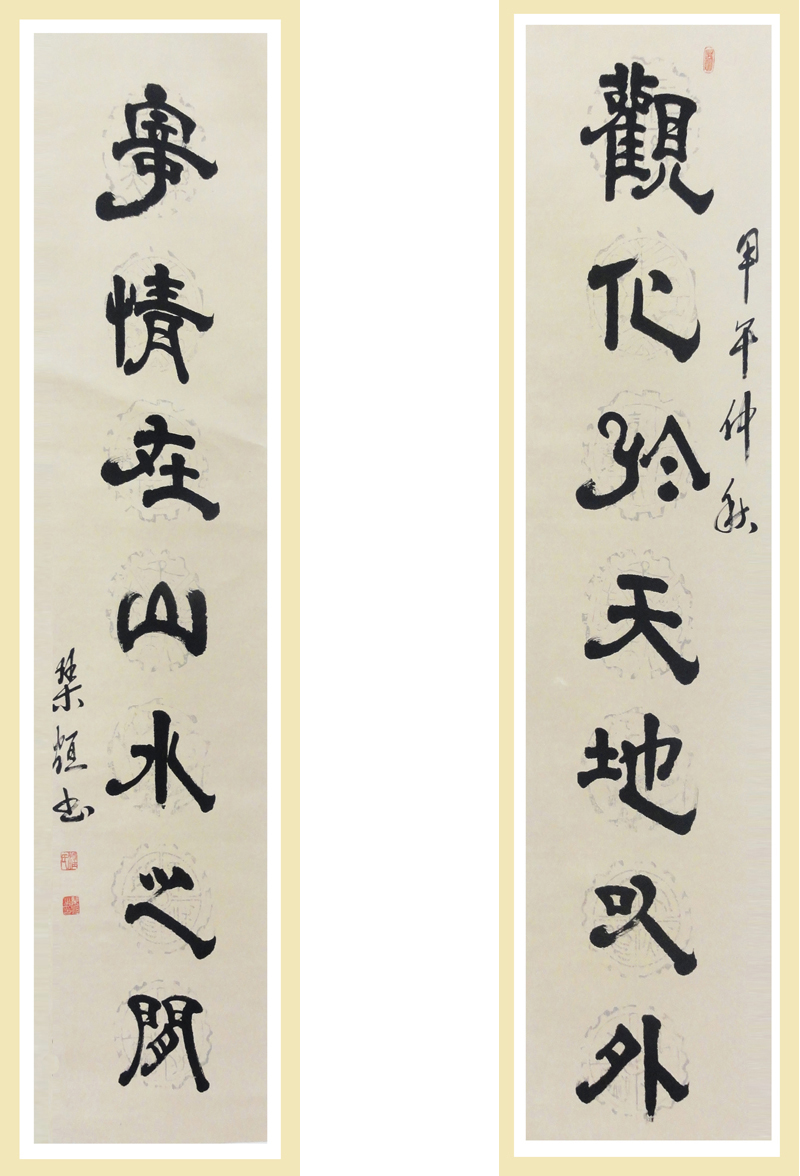 觀化於天地以外
甲午仲秋
寄情在山水之間
书